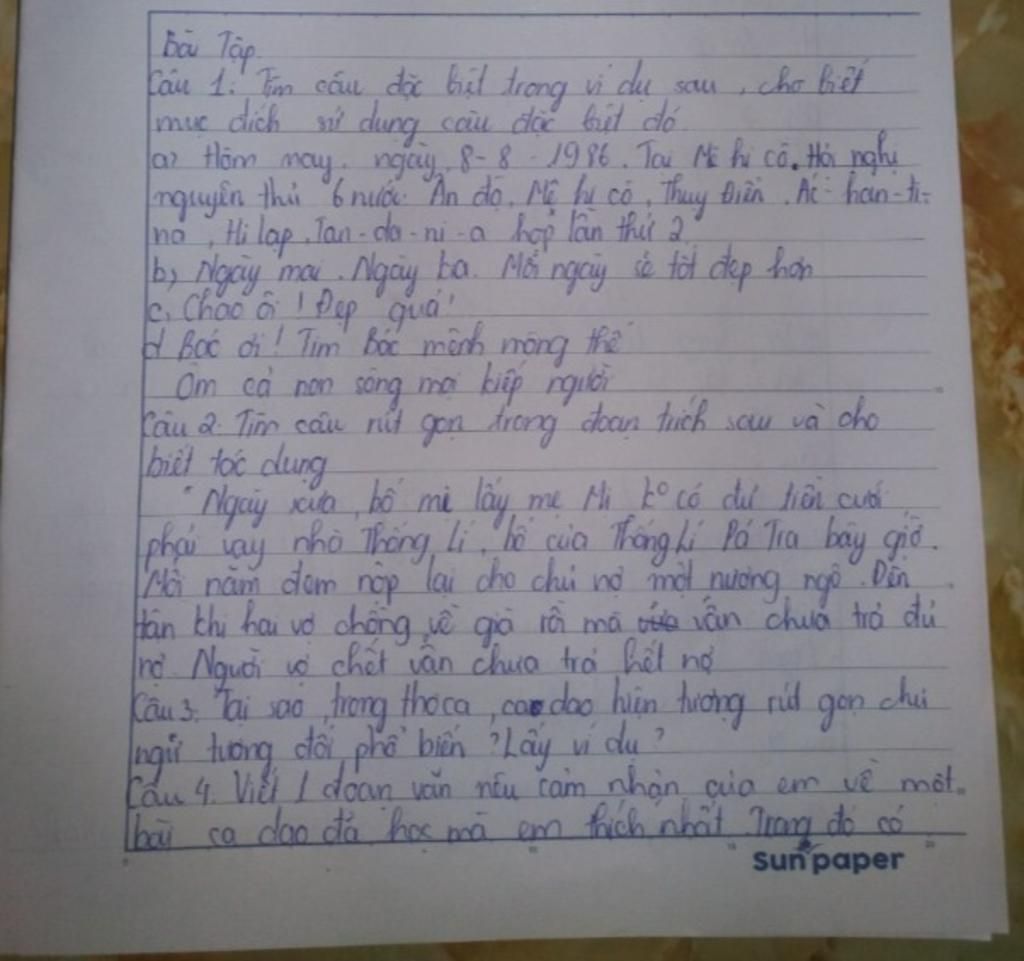 Bài Tập.
Câu 1: Tìm câu đặc biệt trong ví dụ sau, cho biết
mục đích sử dụng câu đặc biệt đó.
a) Hôm nay, ngày 8-8-1986. Tại Mê hi cô. Hội nghị
nguyên thủ 6 nước: Ấn độ, Mê hi cô, Thụy Điển, Ác-han-ti-
na, Hi lạp, Tan-da-ni-a họp lần thứ 2
b) Ngày mai. Ngày kia. Mỗi ngày sẽ tốt đẹp hơn
c, Chao ôi! Đẹp quá!
d Bác ơi! Tim Bác mênh mông thế
Ôm cả non sông mọi kiếp người
Câu 2. Tìm câu rút gọn trong đoạn trích sau và cho
biết tác dụng
"Ngày xưa, bố mị lấy mẹ Mị k° có đủ tiền cưới
phải vay nhà Thống Lí, bố của Thống Lí Pá Tra bây giờ.
Mỗi năm đem nộp lại cho chủ nợ một nương ngô. Đến
tận khi hai vợ chồng về già rồi mà vẫn chưa trả đủ
nợ. Người vợ chết vẫn chưa trả hết nợ
Câu 3: Tại sao, trong thơ ca, ca dao hiện tượng rút gọn chủ
ngữ tương đối phổ biến? Lấy ví dụ?
Câu 4. Viết 1 đoạn văn nêu cảm nhận của em về một
bài ca dao đã học mà em thích nhất. Trong đó có
sun paper